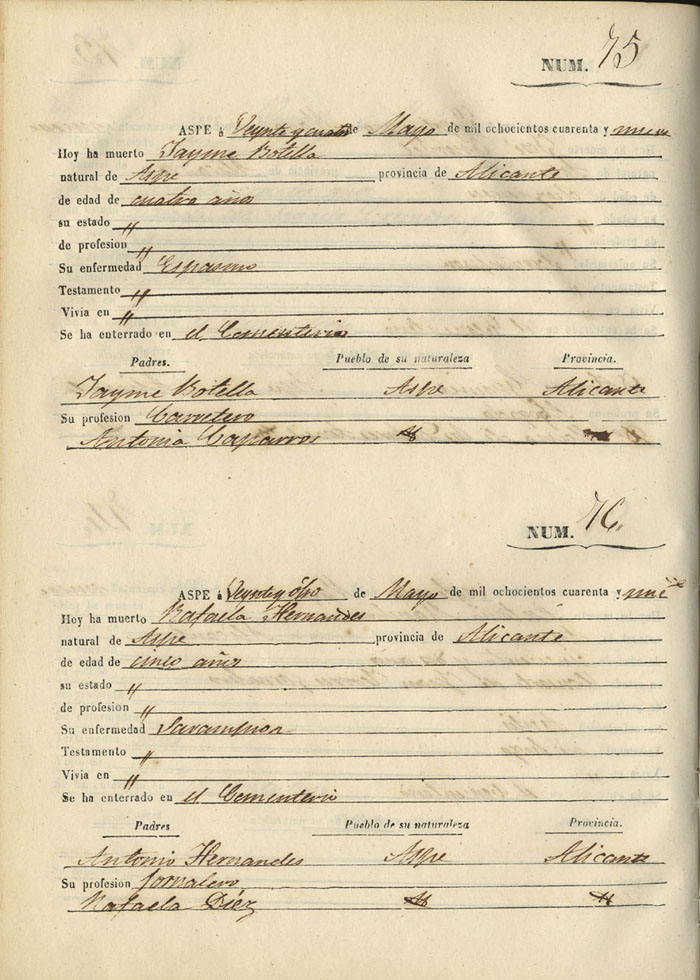 NUM. 75
ASPE á Veynte y cuatro de Mayo de mil ochocientos cuarenta y nueve
Hoy ha muerto Jayme Botella
natural de Aspe provincia de Alicante
de edad de cuatro años
su estado "
de profesion "
Su enfermedad Espasmo
Testamento "
Vivia en "
Se ha enterrado en el Cementerio
Padres. Pueblo de su naturaleza Provincia.
Jayme Botella Aspe Alicante
Su profesion Carretero
Antonia Caparros
NUM. 76.
ASPE á Veynte y ocho de Mayo de mil ochocientos cuarenta y nueve
Hoy ha muerto Rafaela Hernandes
natural de Aspe provincia de Alicante
de edad de cinco años
su estado "
de profesion "
Su enfermedad
Testamento "
Vivia en "
Se ha enterrado en el Cementerio
Padres Pueblo de su naturaleza Provincia.
Antonio Hernandes Aspe Alicante
Su profesion Jornalero
Rafaela Diez